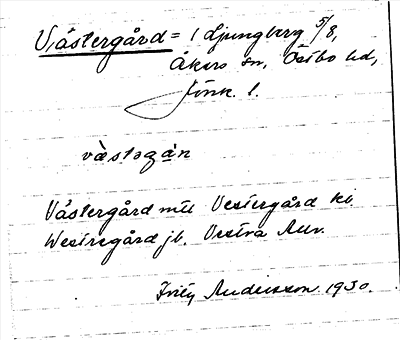 Västergård = 1 Ljungberg 5/8,
Åkers sn, Östbo hd,
Jönk. l.
västəgån
Västergård mtl Vestergård kb.
Westregård jb. Vestra Aur.
Fritz Andersson 1930.